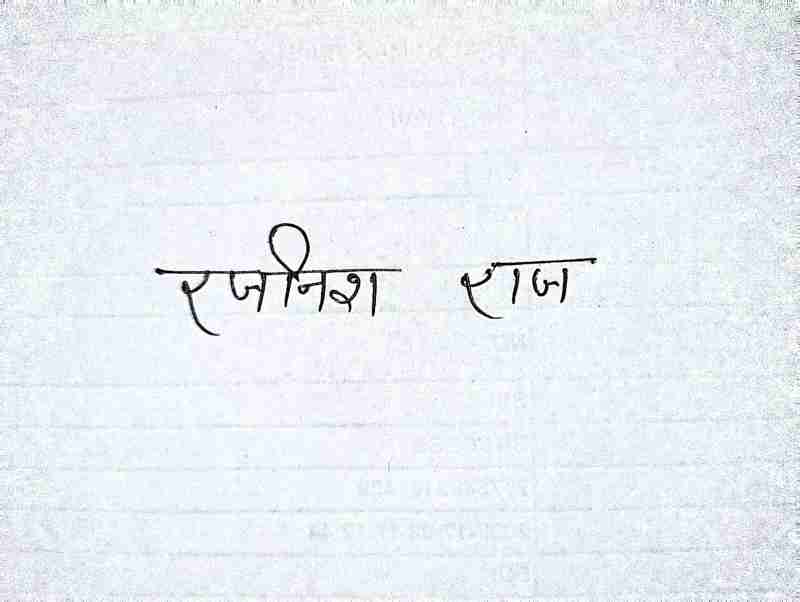 रजनिश राज